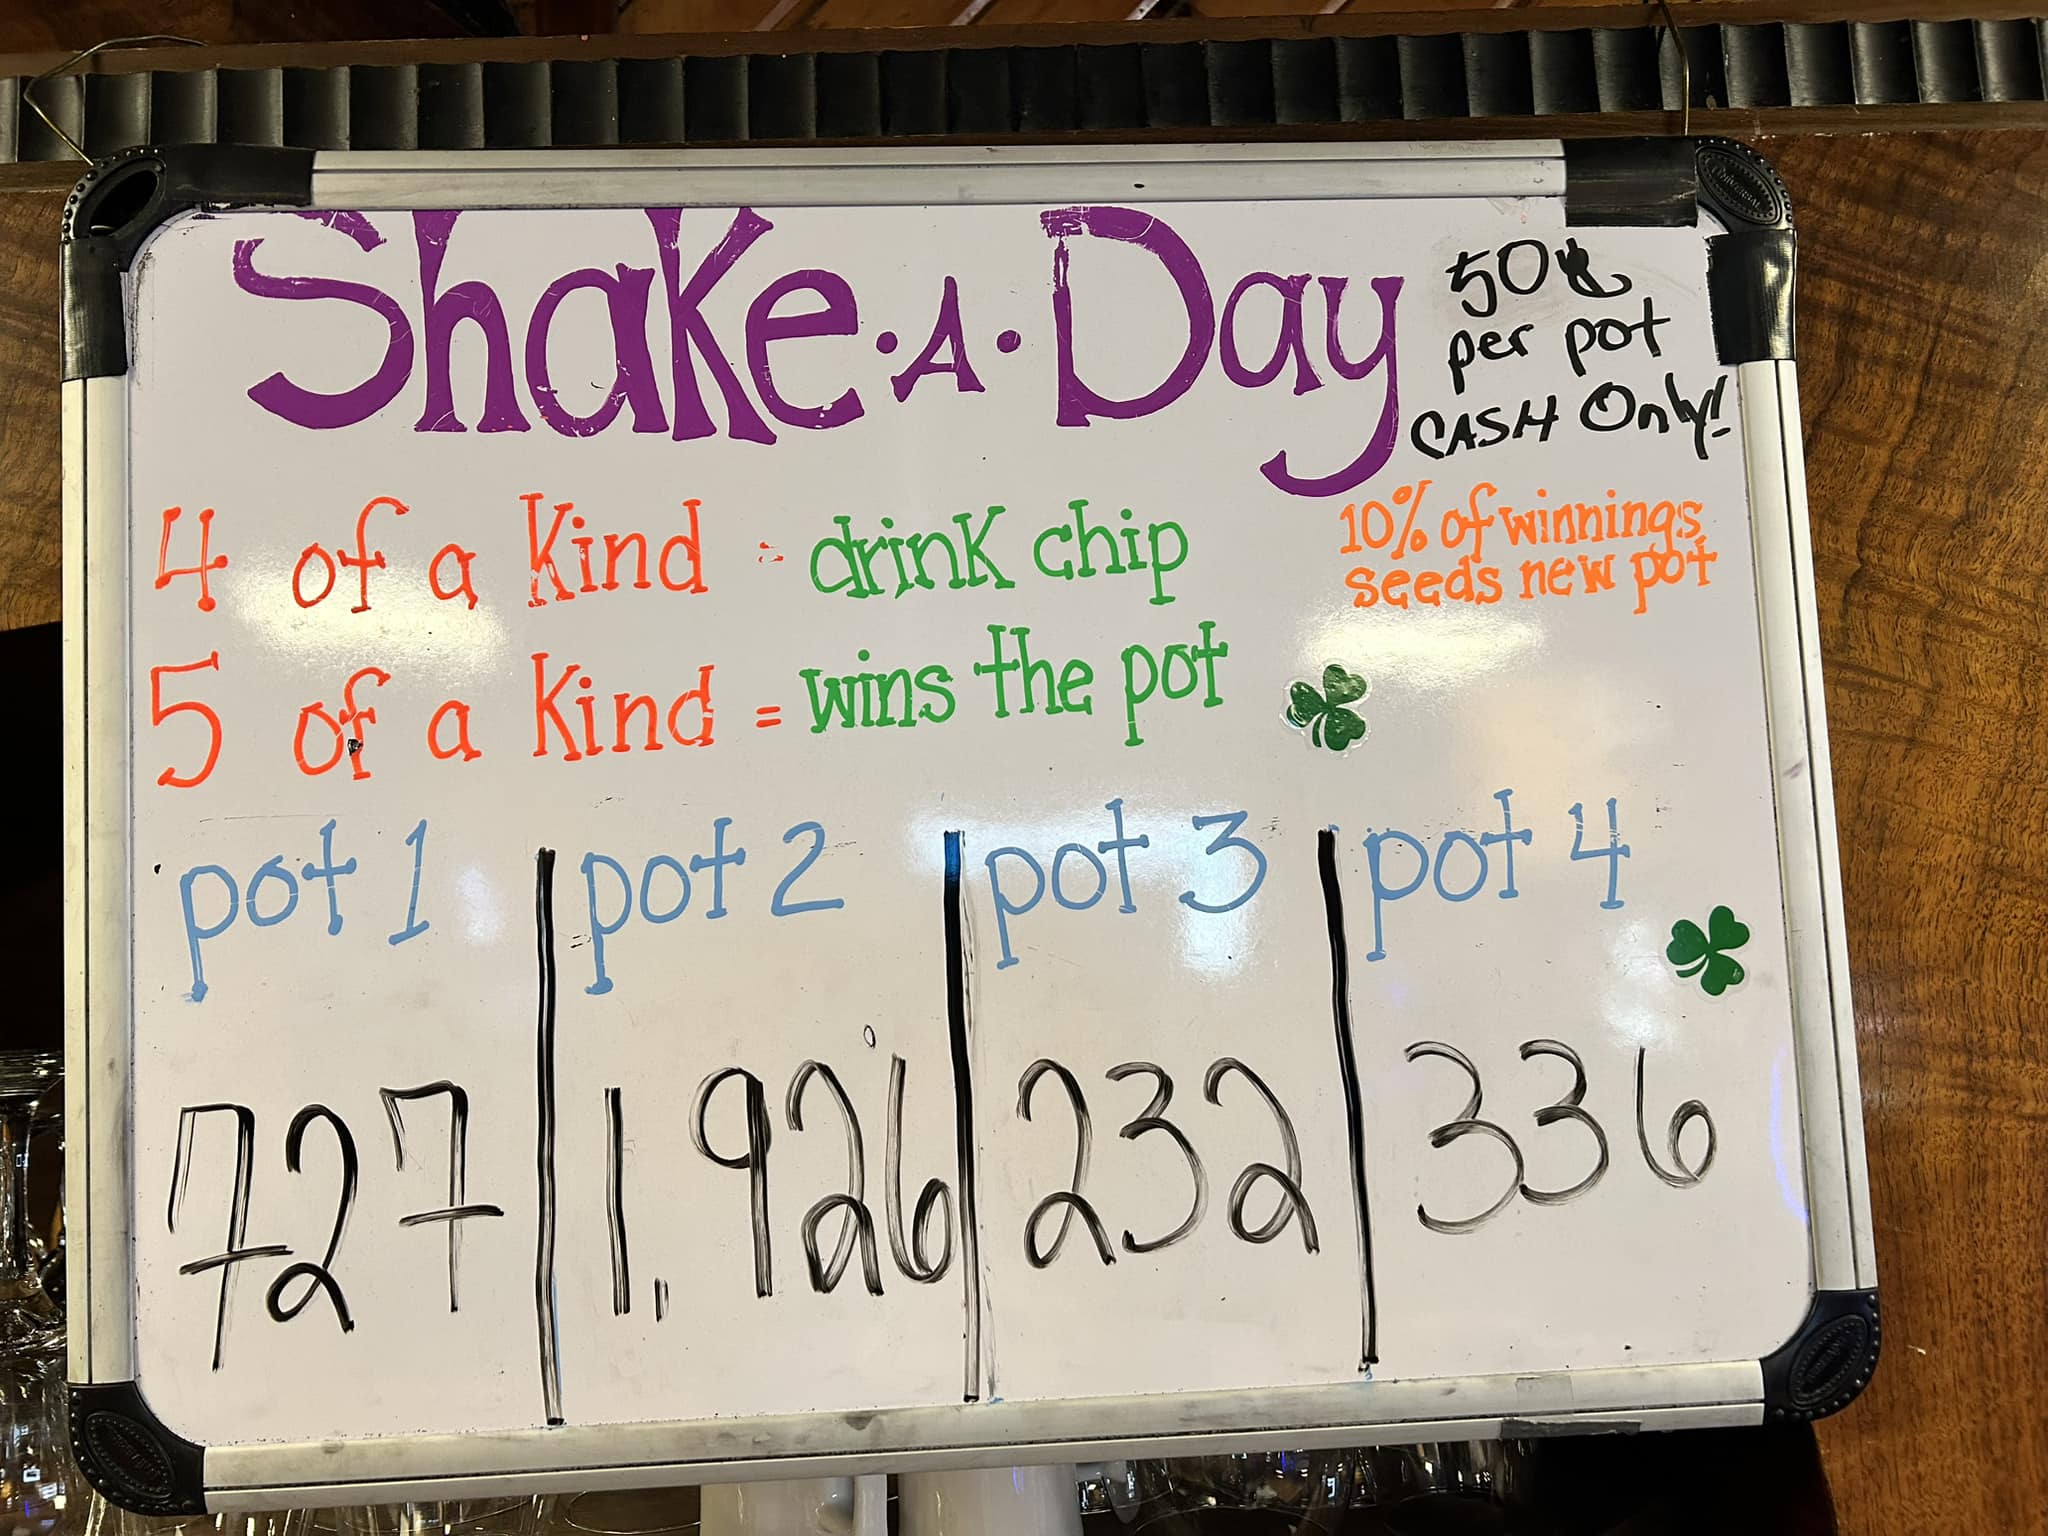 Shake·A·Day
50¢
per pot
CASH Only!
10% of winnings
seeds new pot
4 of a kind = drink chip
5 of a kind = wins the pot
pot 1 pot 2 pot 3 pot 4
727 1,926 232 336